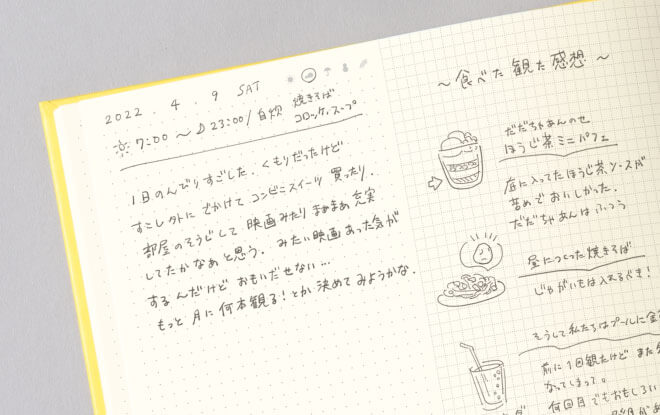 2022. 4. 9 SAT
7:00 〜 23:00/自炊 焼きそば
コロッケ、スープ
1日のんびりすごした。くもりだったけど
すこし外にでかけてコンビニスイーツ買ったり、
部屋のそうじして映画みたりまあまあ充実
してたかなあと思う。みたい映画あった気が
するんだけどおもいだせない…
もっと月に何本観る!とか決めてみようかな。
〜食べた観た感想〜
だだちゃあんのせ
ほうじ茶ミニパフェ
底に入ってたほうじ茶ソースが
苦めでおいしかった。
だだちゃあんはふつう
昼につくった焼きそば
じゃがいもは入れるべき!
そうして私たちはプールに金
前に1回観たけどまた
なってしまって。
何回見てもおもしろい